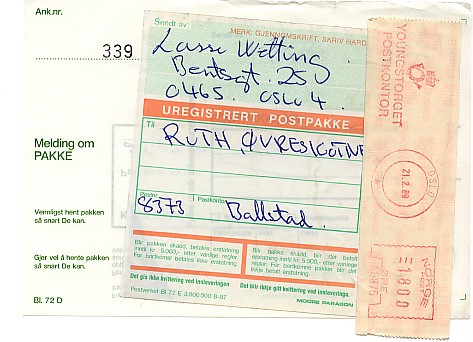 Ank.nr.
339
Melding om
PAKKE
Vennligst hent pakken
så snart De kan.
Gjer vel å hente pakken
så snart De kan.
Bl. 72 D
Sendt av:
MERK: GJENNOMSKRIFT, SKRIV HARD
Lasse Wetting
Bentsegt. 25
0465 OSLO 4.
UREGISTRERT POSTPAKKE
Til
RUTH
Postnr.
Postkontor
8373 Ballstad.
Blir pakken skadd, betales erstatning
inntil kr 5.000,- etter vanlige regler.
For bortkomne betales ikke erstatning.
Blir pakken skadd, blir det betalt
erstatning inntil kr 5.000,- etter vanlege
reglar. For bortkomne pakker blir det
ikkje betalt erstatning.
Det gis ikke kvittering ved innleveringen
Det blir ikkje gitt kvittering ved innleveringa.
Postverket Bl 72 E 3 000 000 9-87
MOORE PARAGON
YOUNGSTORGET
POSTKONTOR
OSLO
21.2.89
NORGE
1800
ØRE